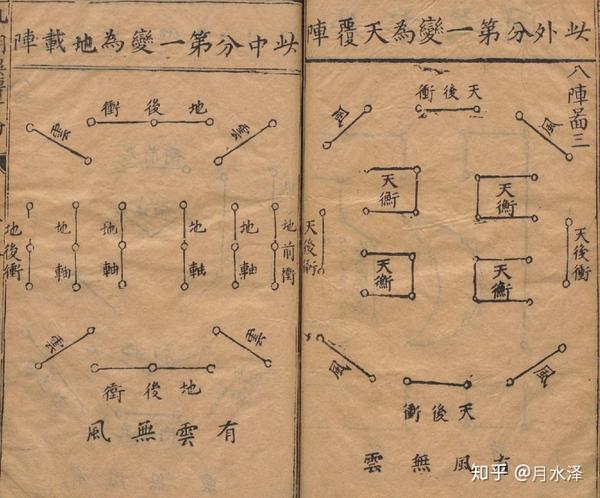 此外分第一變為天覆陣
八陣啚三
天後衝
風
風
天後衝
天衡
天衡
天衡
天衡
天後衝
風
風
天後衝
有風無雲
此中分第一變為地載陣
地後衝
雲
雲
地前衝
地軸
地軸
地軸
地軸
地後衝
雲
雲
地後衝
有雲無風
知乎 @月水泽